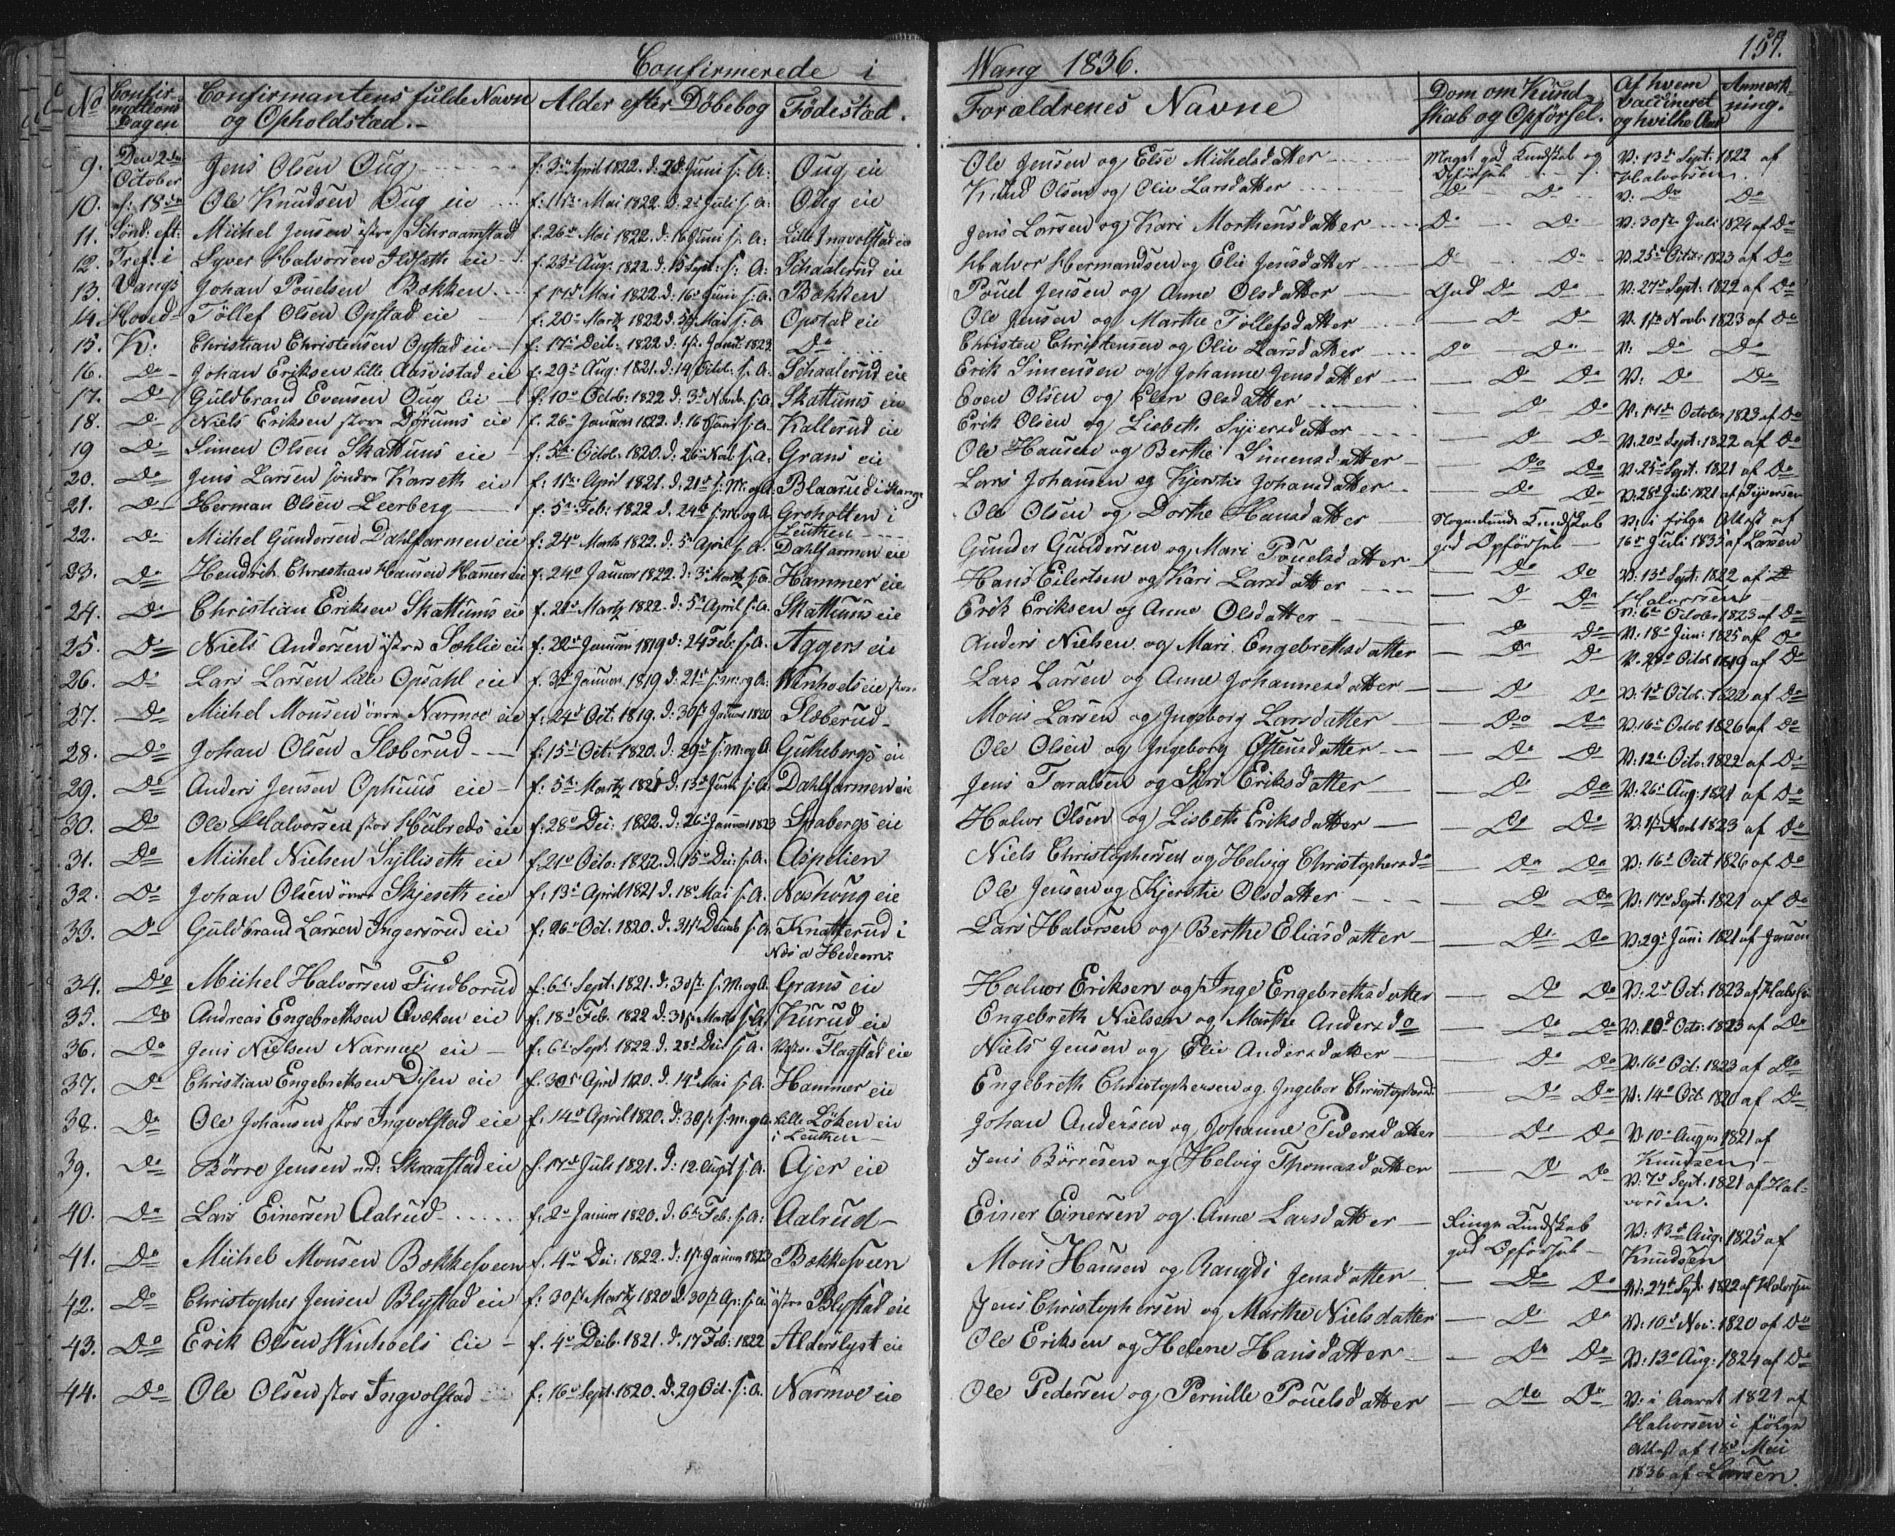 Confirmerede i Wang 1836. 157.
No Confirmations Dagen Confirmantens fulde Navn og Opholdsted. Alder efter Döbebog Födested. Forældrenes Navne Dom om Kundskab og Opförsel. Af hvem vaccineret og hvilke Aar Anmærkning.
9. Den 2den October Jens Olsen Oug f: 3de April 1822. d: Juni s: A: Oug eie Ole Jensen og Else Michelsdatter Meget god Kundskab og Opförsel V: 13de Sept: 1822 af Halvorsen.
10. 18de Ole Knudsen Oug eie f: 11te Mai 1822. d: 2de Juli s: A: Oug eie Knud Olsen og Olie Larsdatter Do Do V: Do Do
11. Sönd: eft: Michel Jensen östre Schraamstad f: 26de Mai 1822. d: 16 Juni s: A: Lille Ingvolstad eie Jens Larsen og Kari Morthensdatter Do Do V: 30te Juli 1824 af Do
12. Tref: i Syver Halvorsen Ildseth eie f: 23de Aug: 1822. d: 15 Sept: s: A: Schaalerud eie Halvor Hermandsen og Elie Jensdatter Do Do V: 25de Octb: 1823 af Do
13. Vangs Johan Pouelsen Bækken f: 17de Mai 1822. d: 16de Juni s: A: Bækken Pouel Jensen og Anne Olsdatter God Do Do V: 27de Sept: 1822 af Do
14. Hoved- Töllef Olsen Opstad eie f: 20de Martz 1822 d: 5te Mai s: A. Opstad eie Ole Jensen og Marthe Töllefsdatter Do Do V: 1ste Novb: 1823 af Do
15. K: Christian Christensen Opstad eie f: 17de Decb: 1822. d: 1ste Janu: 1823. Do Christen Christensen og Olie Larsdatter Do Do V: Do Do
16. Do Johan Eriksen lille Aasvistad eie f: 29de Aug: 1821. d: 14 Octob: s: A. Schaalerud eie Erik Simensen og Johanne Jensdatter Do Do V: Do Do
17. Do Guldbrand Evensen Oug Eie f: 10de Octob: 1822 d: 3de Novb. s: A. Skattums eie Even Olsen og Ellen Olsdatter Do Do V: 17de October 1823 af Do
18. Do Niels Eriksen store Dörums eie f: 26de Januar 1822. d: 16 s: A. Kallerud eie Erik Olsen og Lisbeth Syversdatter Do Do V: 20de Sept: 1822 af Do
19 Do Simen Olsen Skattums eie f: 5te Octob: 1820. d: 26de Nov: s: A. Grans eie Ole Hansen og Berthe Simensdatter Do Do V: 25de Sept: 1821 af Do
20. Do Jens Larsen söndre Karseth eie f: 11te April 1821. d: 21de s: M: og A. Blaarud i Stange Lars Johansen og Kjerstie Johansdatter Do Do V: 28de Juli 1821 af Syversen
21. Do Herman Olsen Leerberg f: 5te Feb: 1822 d: 24de s: M: og A. Groholten i Leuthen Ole Olsen og Dorthe Hansdatter Nogenlunde Kundskab god Opförsel V: i fölge Attest af 16de Juli 1835 af Larsen
22. Do Michel Gundersen Dahlfarmen eie f: 24de Martz 1822. d: 5te April s: A. Dahlfarmen eie Gunder Gundersen og Mari Pouelsdatter Do Do V: 13de Sept: 1822 af Halvorsen
23. Do Hendrik Christian Hansen Hammer eie f: 24de Januar 1822. d: 3de Martz s: A. Hammer eie Hans Eilertsen og Kari Larsdatter Do Do V: 6te October 1823 af Do
24. Do Christian Eriksen Skattums eie f: 20de Martz 1822. d: 5te April s: A. Skattums eie Erik Eriksen og Anne Olsdatter Do Do V: 18de Juni: 1825 af Do
25. Do Niels Andersen östre Sæhlie eie f: 22de Januar 1819 d: 24 Feb: s. A. Aggers eie Anders Nielsen og Mari Engebrethsdatter Do Do V: Octob 1819 af Do
26. Do Lars Larsen lille Opsahl eie f. 3de Januar 1819 d: 21de s: m: og A: Winhoels eie store Lars Larsen og Anne Johannesdatter Do Do V: 4de Octob. 1822 af Do
27. Do Michel Monsen övre Narmoe eie f: 24de Oct: 1819. d: 30te Januar 1820 Sloberud Mons Larsen og Ingeborg Larsdatter Do Do V: 16de Octob 1826 af Do
28. Do Johan Olsen Sloberud f: 15de Oct: 1820. d: 29de s: m: og A Gukebergs eie Ole Olsen og Ingeborg Östensdatter Do Do V: 12te Octo: 1822 af Do
29. Do Anders Jensen Ophuus eie f: 5te Martz 1821 d: 13de Juni s: A. Dahlfarmen eie Jens Taralsen og Siri Eriksdatter Do Do V: 26de Aug: 1821 af Do
30. Do Ole Halvorsen stor Hubreds eie f: 28de Dec: 1822. d: 26de Januar 1823 Spabergs eie Halvor Olsen og Lisbeth Eriksdatter Do Do V: 1ste Novb 1823 af Do
31. Do Michel Nielsen Sylliseth eie f. 21de Octo: 1822. d: 15de Dec: s: A. Aspelien Niels Christophersen og Helvig Christophersdo Do Do V: 16de Oct 1826 af Do
32. Do Johan Olsen övre Skjeseth eie f: 13de April 1821 d. 18de Mai s: A. Noshoug eie Ole Jensen og Kjerstie Olsdatter Do Do V: 17de Sept: 1821 af Do
33. Do Guldbrand Larsen Ingersrud eie f: 26de Oct: 1820. d. 31ste Decmb s: A. Knatterud i Næs a Hedem: Lars Halvorsen og Berthe Eliasdatter Do Do V: 29de Juni 1821 af Jensen
34. Do Michel Halvorsen Findborud f: 6te Sept. 1821. d: 30te s: M: og A. Grans eie Halvor Eriksen og Inge Engebrethsdatter Do Do V: 2de Oct: 1823 af Halvorsen
35. Do Andreas Engebrethsen Qvæken eie f: 18de Feb. 1822 d: 31ste Marts s: A. Kurud eie Engebreth Nielsen og Marthe Andersdo Do Do V: 10de Octo: 1823 af Do
36. Do Jens Nielsen Narmoe eie f: 6te Sept. 1822. d. 28de Dec s: A. Flagstad eie Niels Jensen og Elie Andersdatter Do Do V: 16de Oct: 1823 af Do
37. Do Christian Engebrethsen Disen eie f: 30te April 1820. d: 14de Mai s: A. Hammer eie Engebreth Christophersen og Ingebor Christophersd. Do Do V: 14de Oct 1820 af Do
38. Do Ole Johansen stor Ingvolstad eie f: 14de April 1820. d: 30te s: M: og A. Lille Löken eie i Leuthen Johan Andersen og Johanne Pedersdatter Do Do V: 10de August 1821 af Knudsen
39. Do Börre Jensen nd: Skraastad eie f: 17de Juli 1821. d: 12. August s: A. Ajer eie Jens Börresen og Helvig Thomasdatter Do Do V: 7de Sept. 1821 af Halvorsen.
40. Do Lars Einersen Aalrud f: 2de Januar 1820. d. 6te Feb: s: A: Aalrud Einer Einersen og Anne Larsdatter Ringe Kundskab god Opförsel V: 13de Aug: 1825 af Knudsen
41. Do Michel Monsen Bækkesveen f. 4de Dec: 1822. d: 1ste Januar 1823 Bækkesveen Mons Hansen og Rangdi Jensdatter Do Do V: 27de Sept. 1822 af Halvorsen
42. Do Christopher Jensen Blystad eie f: 30te Martz 1820 d: 30te Ap: s: A. östre Blystad eie Jens Christophersen og Marthe Nielsdatter Do Do V: 10de Nov: 1820 af Do
43. Do Erik Olsen Winhoels Eie f: 4de Decb: 1821. d. 17 Feb: 1822 Alderslyst eie Ole Eriksen og Helene Hansdatter Do Do V: 13de Aug: 1824 af Do
44. Do Ole Olsen stor Ingvolstad f: 16de Sept: 1820. d. 29 Oct. s: A. Narmoe eie Ole Pedersen og Pernille Pouelsdatter Do Do V: i Aaret 1821 af Halvorsen i fölge Attest af 18de Mai 1836 af Larsen.